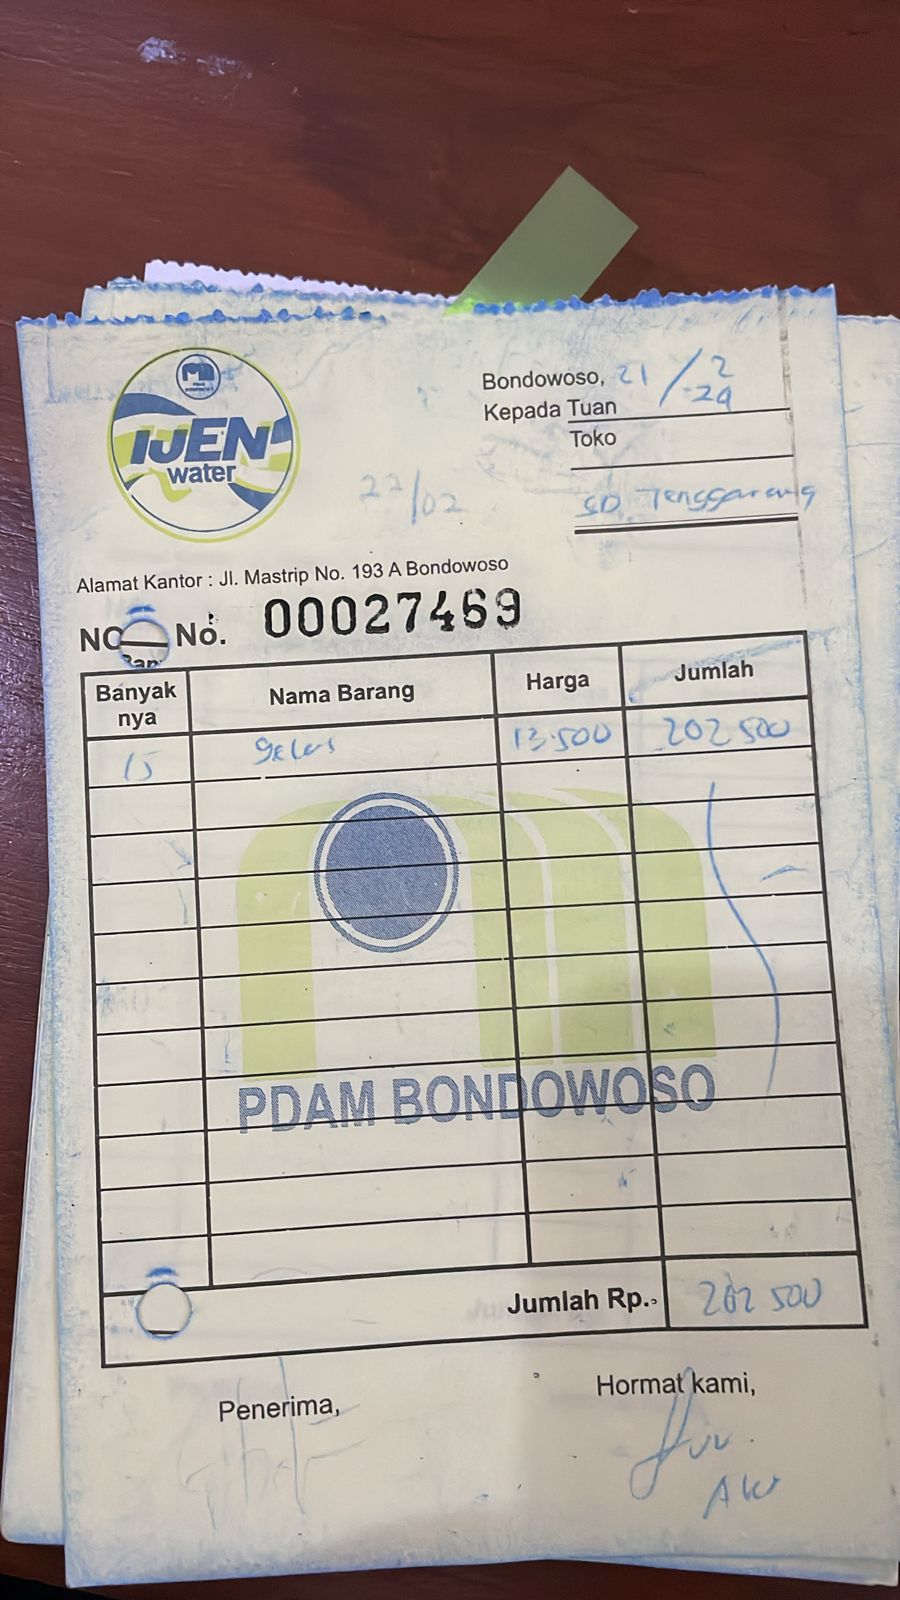 IJEN
water
Bondowoso, 21/2 -24
Kepada Tuan
Toko
22/02
SD Tenggarang
Alamat Kantor : Jl. Mastrip No. 193 A Bondowoso
No. 00027469
Banyak nya Nama Barang Harga Jumlah
15 gelas 13.500 202 500
PDAM BONDOWOSO
Jumlah Rp. 202 500
Penerima, Hormat kami,